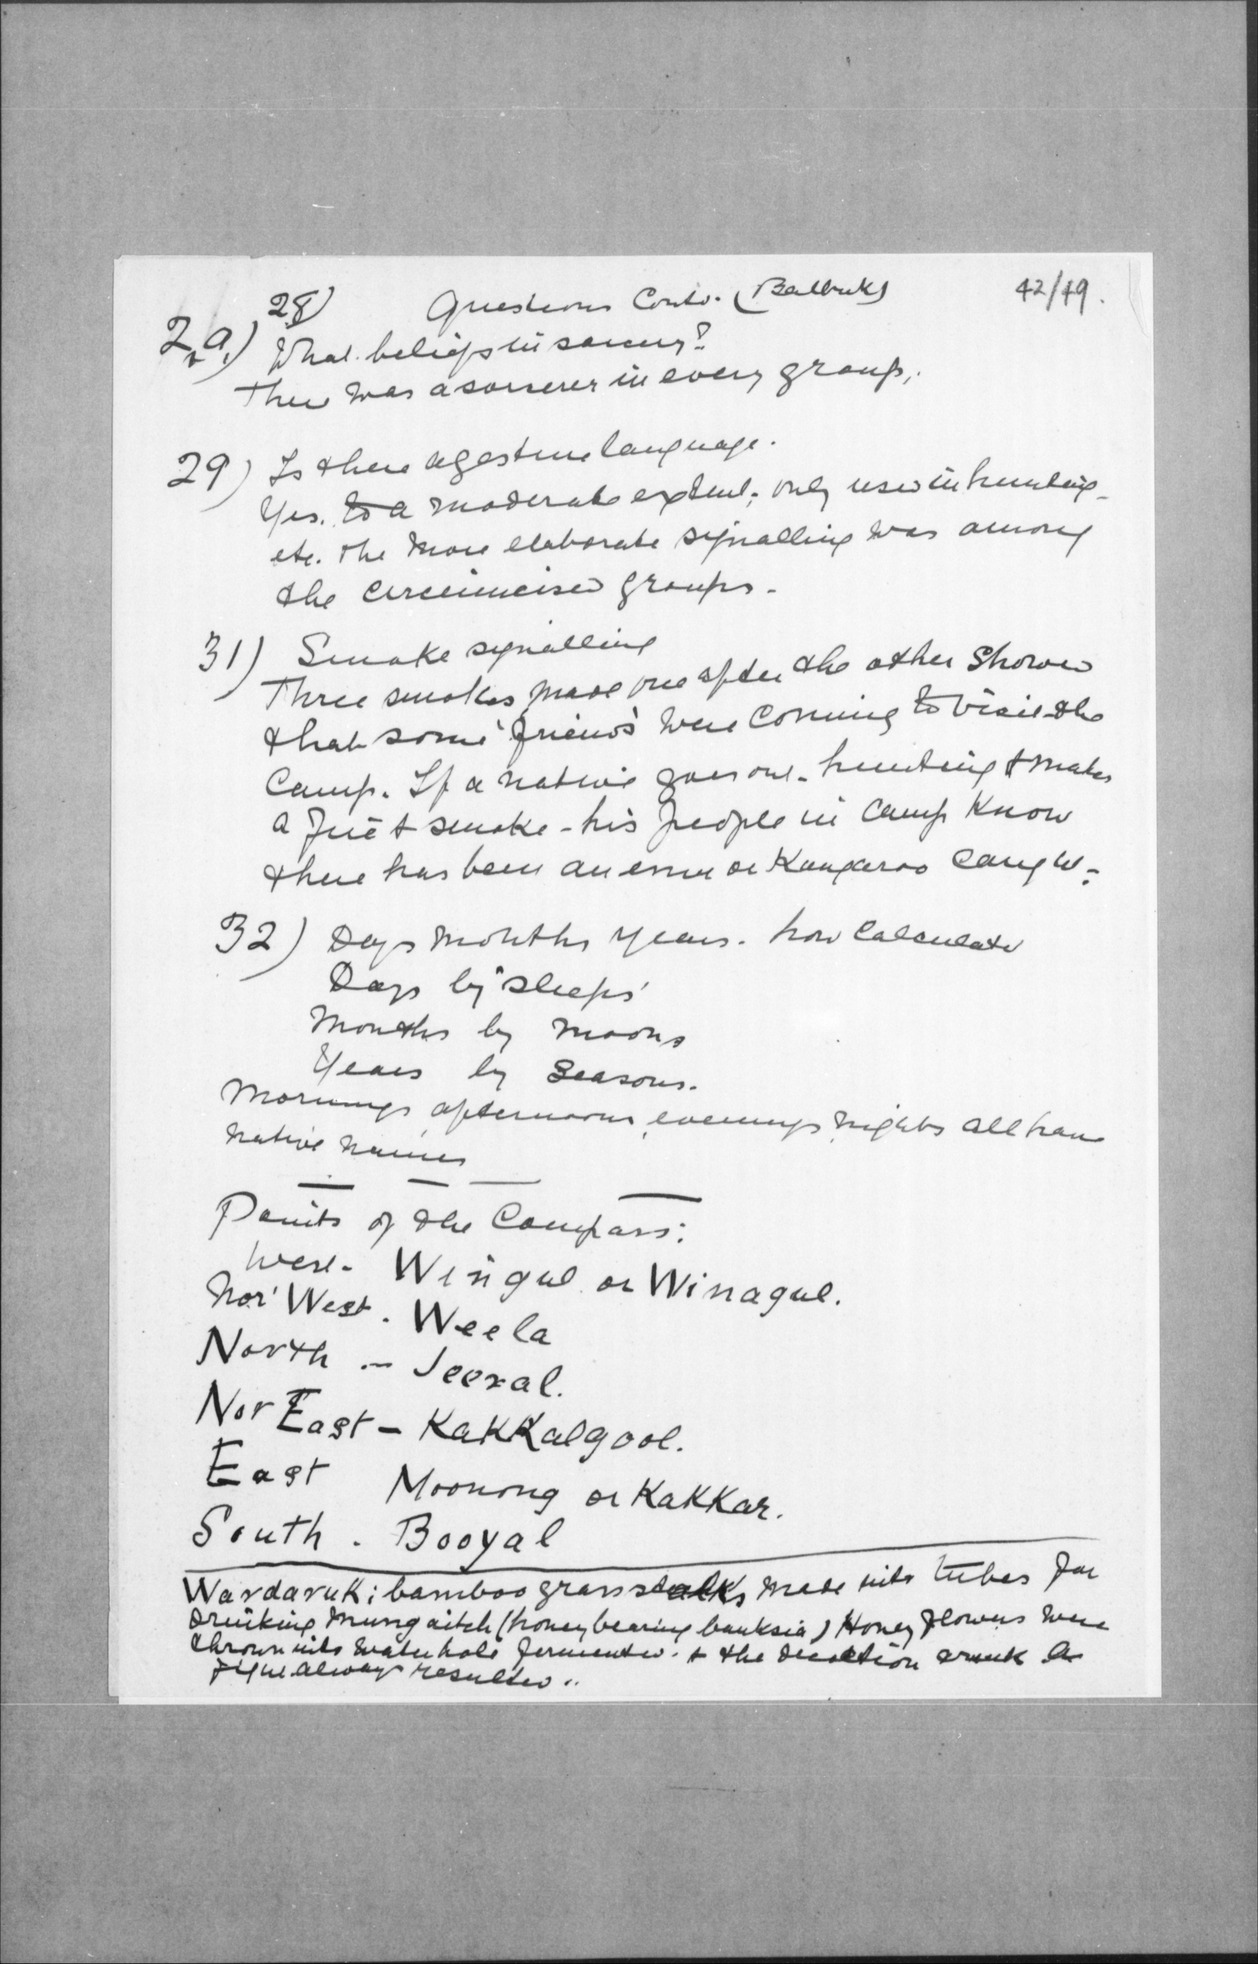 28) Questions Contd. (Balbuk) 42/49.
2a.) What beliefs in sorcery?
There was a sorcerer in every group.
29) Is there a gesture language.
Yes. to a moderate extent; only used in hunting
etc. The more elaborate signalling was among
the circumcised groups.
31) Smoke signalling
Three smokes made one after the other showed
that some "friends" were coming to visit the
Camp. If a native goes out hunting & makes
a fire & smoke - his people in camp know
there has been an emu or Kangaroo caught.
32) Days months years. how calculated
Days by "sleeps"
Months by moons
Years by Seasons.
Mornings afternoons, evenings nights all have
native names
Points of the Compass:
West - Wingul or Winagul.
Nor' West. Weela
North - Jeeral.
Nor East - KakKalgool.
East Moonong or KakKar.
South. Booyal
Wardaruk; bamboo grass stalks made into tubes for
drinking Mungaitch (honey bearing banksia) Honey flowers were
thrown into water hole fermented. & the decoction drunk a
fight always resulted..